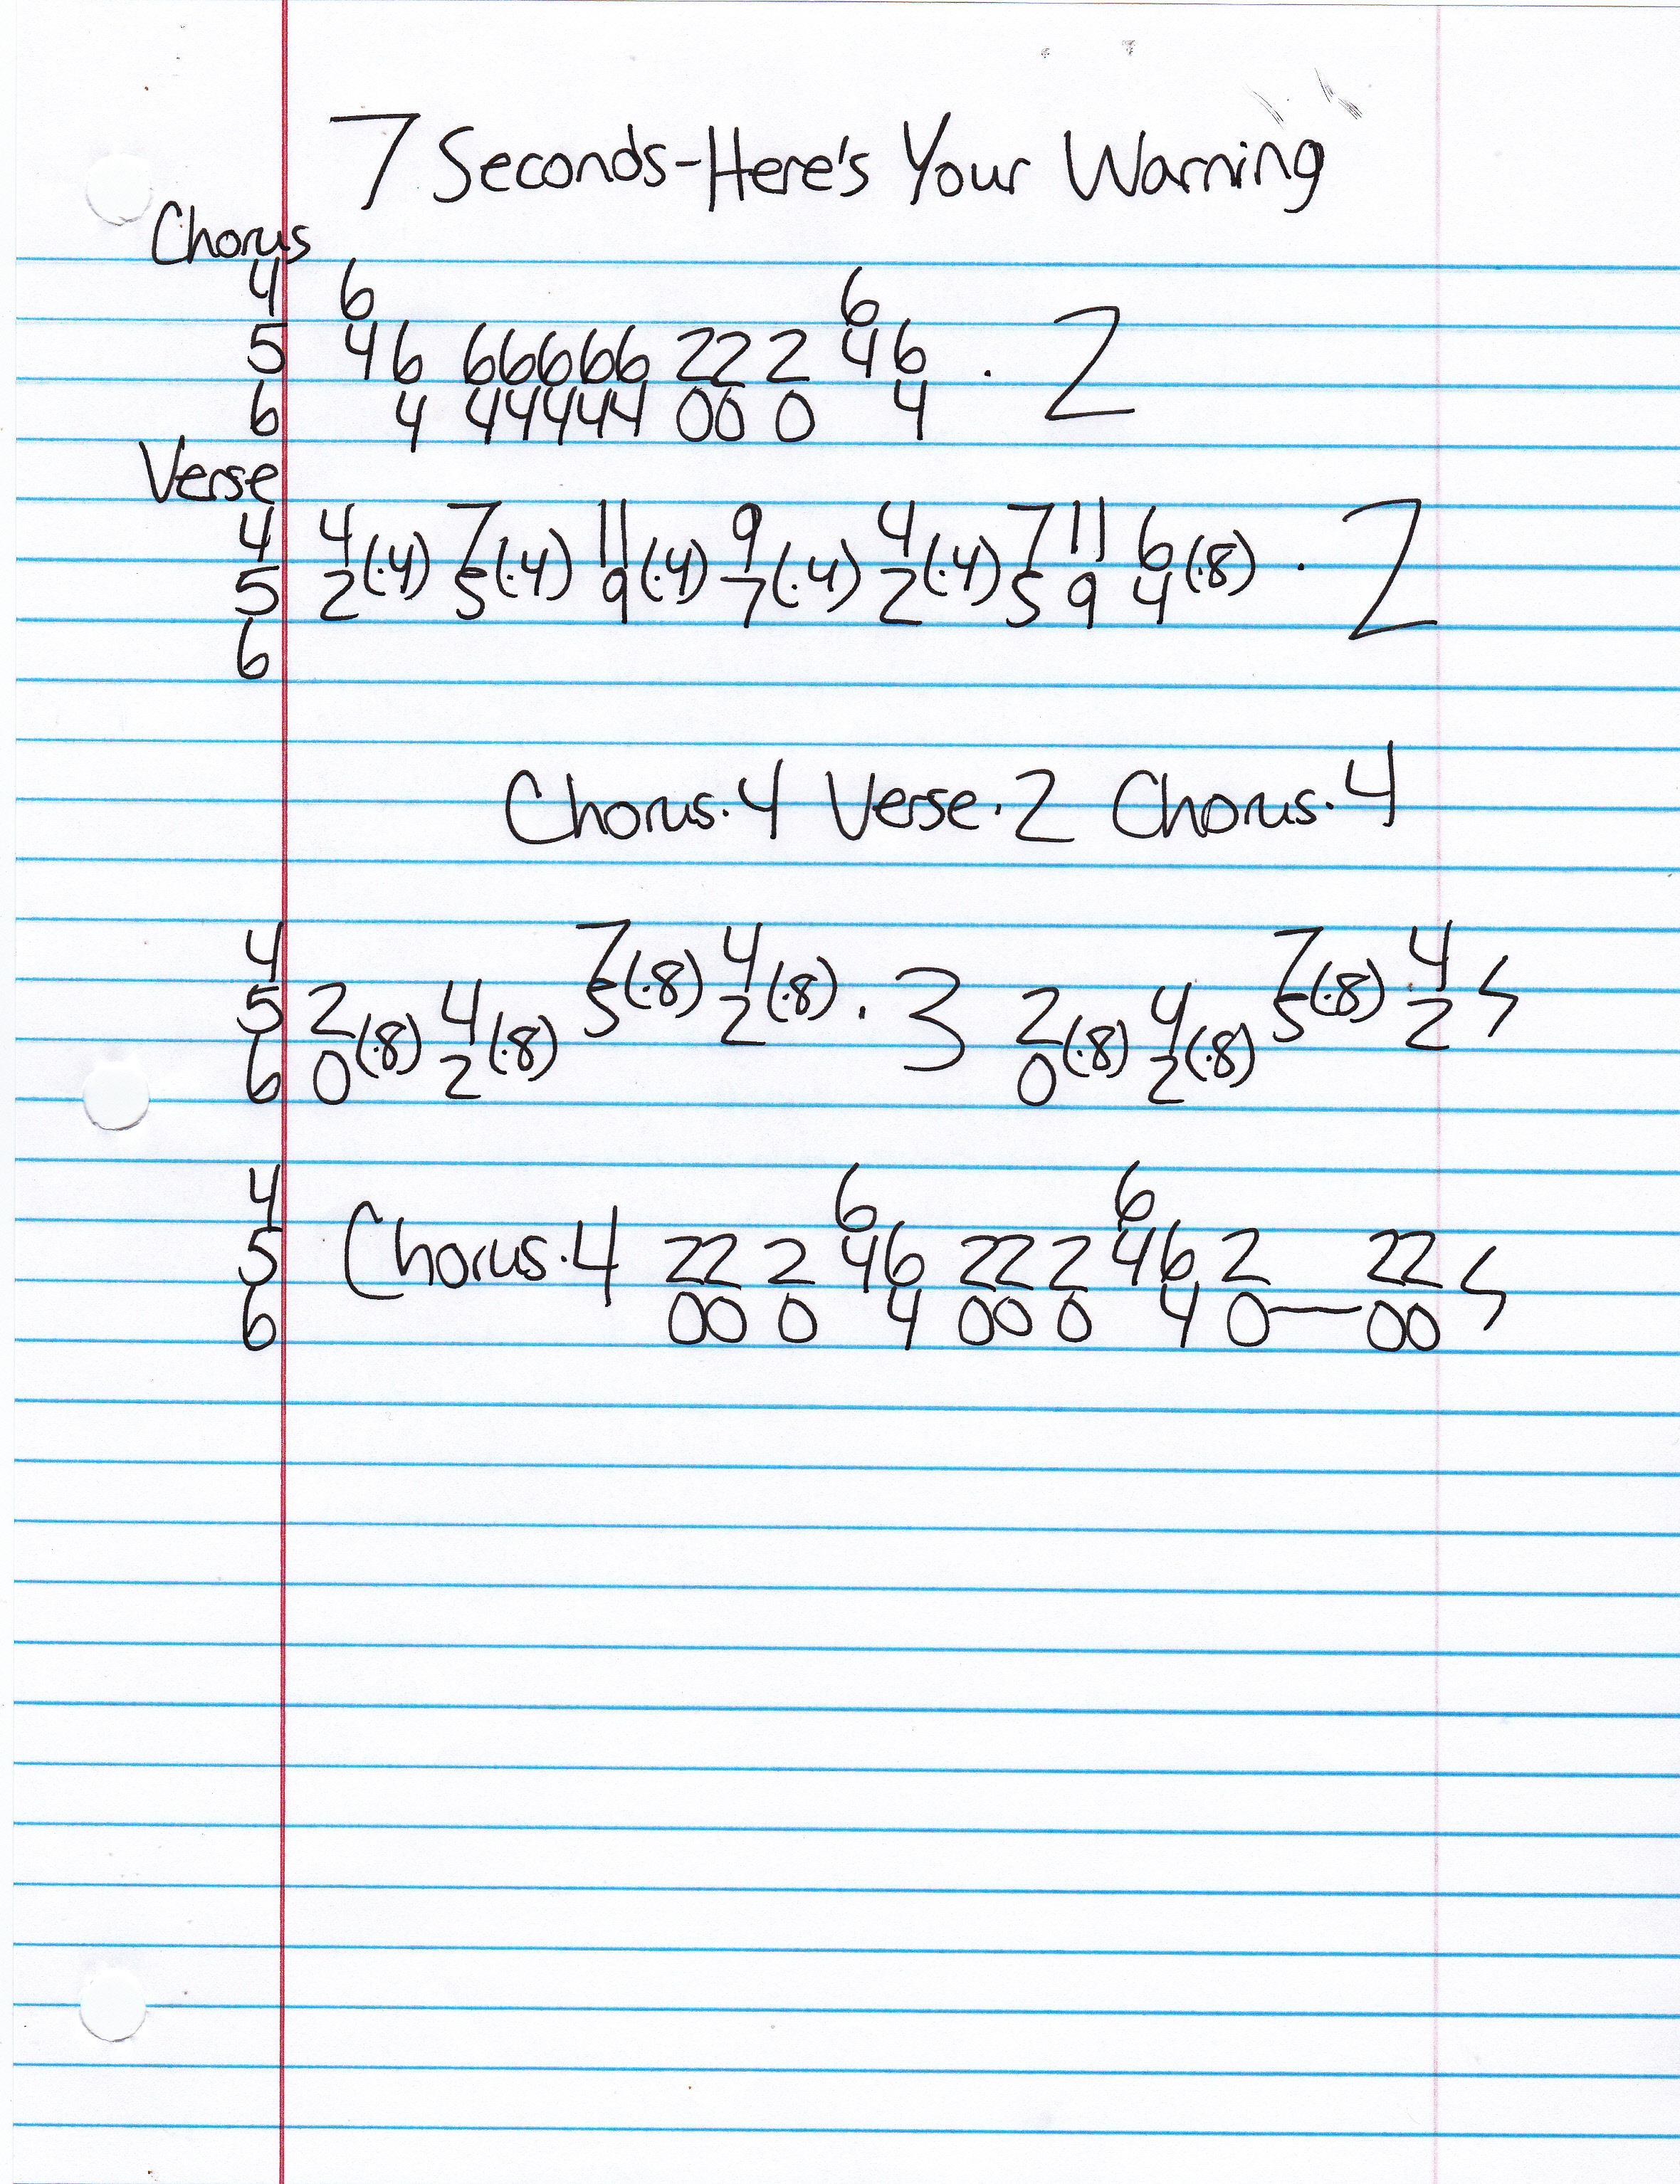 7 Seconds-Here's Your Warning
Chorus
4 6 6
5 46 66666 22 2 46 · 2
6 4 44444 00 0 4
Verse
4 4 7 11 9 4 7 11 6
(·4) (·4) (·4) (·4) (·4) (·8) · 2
5 2 5 9 7 2 5 9 4
6
Chorus·4 Verse·2 Chorus·4
4 7 4 7 4
5 2 4 5 (·8) 2 (·8) · 3 2 4 5 (·8) 2 ϟ
6 0 (·8) 2 (·8) 0 (·8) 2 (·8)
4 6 6
5 Chorus·4 22 2 46 22 2 46 2 22 ϟ
6 00 0 4 00 0 4 0—00